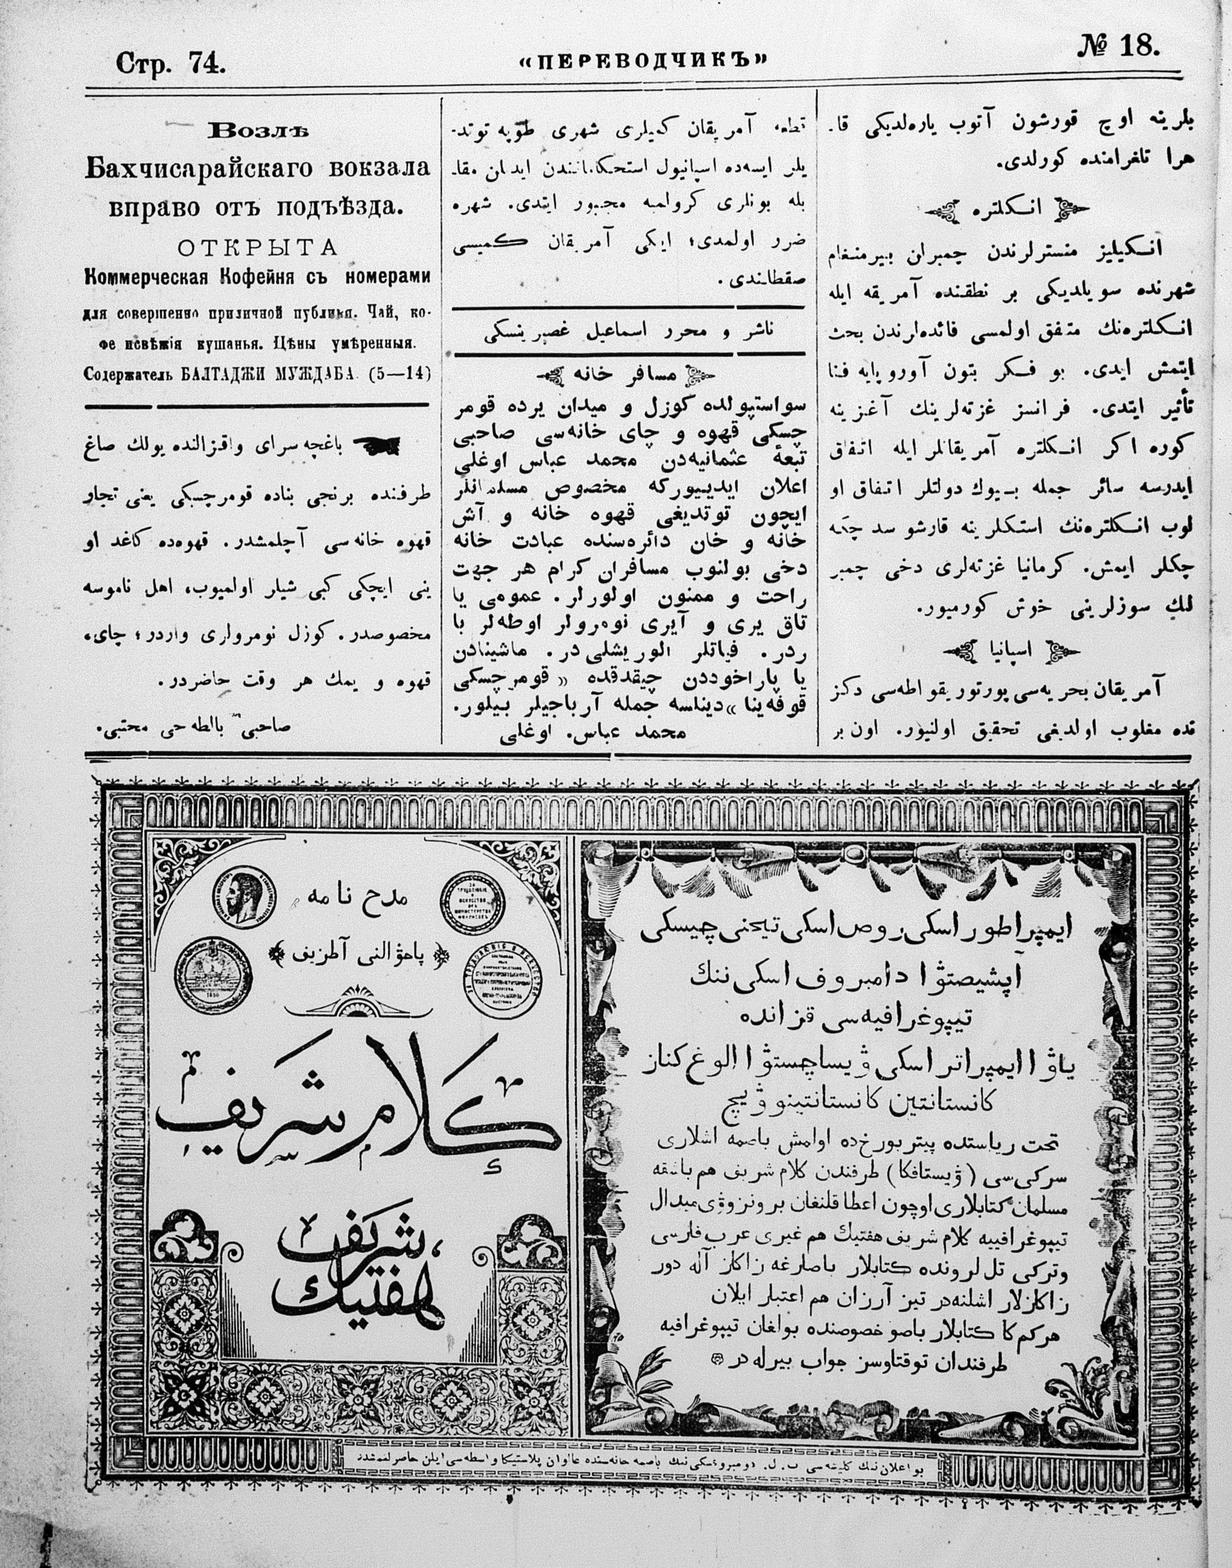 Стр. 74.
«ПЕРЕВОДЧИКЪ»
№ 18.
Возлѣ
Бахчисарайскаго вокзала
вправо отъ подъѣзда.
ОТКРЫТА
Коммерческая Кофейня съ номерами
для совершенно приличной публики. Чай, ко-
фе свѣжія кушанья. Цѣны умѣренныя.
Содержатель БАЛТАДЖИ МУЖДАБА (5—14)
باغچه سرای واقزالنده یولك صاغ
طرفنده برنجی بناده قومرچسكی یعنی تجار
قهوه خانه سی آچلمشدر. قهوه‌ده كاغد او
ینی ایچكی كبی شیلر اولمیوب، اهل ناموسه
مخصوصدر. كوزل نومرولری واردر؛ چای،
قهوه و یمك هر وقت حاضردر.
صاحبی بالطه جی مجتبی.
قطه، آمریقان كمیلری شهری طوپه توتد-
یلر ایسه‌ده اسپانیول استحكاماتندن ایدلن مقا-
بله بونلری كرولمیه مجبور ایتدی. شهره
ضرر اولمدی؛ ایكی آمریقان كمیسی
صقطلندی.
ناشر و محرر اسماعیل غصپرینسكی
مسافر خانه
سواستپولده كوزل و میدان یرده قومر
چسكی قهوه و چای خانه‌سی صاحبی
تبعهٔ عثمانیه‌دن محمد عباس اوغلی
اعلان ایدییوركه مخصوص مسلمانلر
ایچون توتدیغی قهوه خانه و آش
خانه و خان دائره‌سنده عبادت خانه
دخی بولنوب مسافران كرام هر جهت
راحت و ممنون اولورلر. عمومی یا
تاق یری و آیری نومرولر اوطه‌لر با
ردر. فیاتلر الوریشلی در. ماشینادن
یا پاراخوددن چیقدقده «قومرچسكی
قوفه‌ینا» دینلسه جمله آرباجیلر بیلور.
محمد عباس. اوغلی
بلرینه اوچ قورشون آتوب یاره‌لدیكی قا-
هرا تلغرامنده كورلدی.
انـكلتره
انـكیلیز منسترلرندن چمبرلن بیرمنغام
شهرنده سویلدیكی بر نطقنده آمریقه ایله
انـكلتره‌نك متفق اولمسی فائده‌لرندن بحث
ایتمش ایدی. بو فـكر بتون آوروپایه فنا
تأثیر ایتدی. فرانسز غزته‌لرینك آغزینه
كوره اكر انـكلتره آمریقانلر ایله اتفاق
ایدرسه سائر جمله بیوك دولتلر اتفاق او
لوب انـكلتره‌نك استكلرینه قارشو سد چكه
چكلر ایمش. كرمانیا غزته‌لری دخی چمبر
لنك سوزلرینی خوش كورمیور.
اسپانیا
آمریقان بحریه‌سی پورتوریقو اطه‌سی دكز
نده مغلوب اولدیغی تحقیق اولنیور. اون بر
مدح نامه
پاخوالنی آطزیف
كلام شریف
هفتیك شریف
ایمپراطوراسكی روص اسكی تیخنی چیسكی
آپشیصتوا دامبروف اسكی ننك
تیپوغرافیه‌سی قزانده
یاۋا ایمپراتراسكی ۋیساچستوا الوغ كناز
كانستانتین كانستانتینوۋیچ
تحت ریاستده پیتربورخ‌ده اولمش باصمه اشلاری
سركی‌سی (ۋیستافكا) طرفندن كلام شریف هم باشقه
مسلمان كتابلاری اوچون اعطا قلنغان برونزوۋی میدال
تیپوغرافییه كلام شریف هفتیك هم غیری عرب فارسی
وتركی تل لرونده كتابلار باصارغه زاكاز آله دور
زاكازلار اشلنه‌در تیز آرزان هم اعتبار ایلان
هركم كا كتابلار باصو خصوصنده بولغان تیپوغرافیه
طرفندان توقتاوسز جواب بیرله در